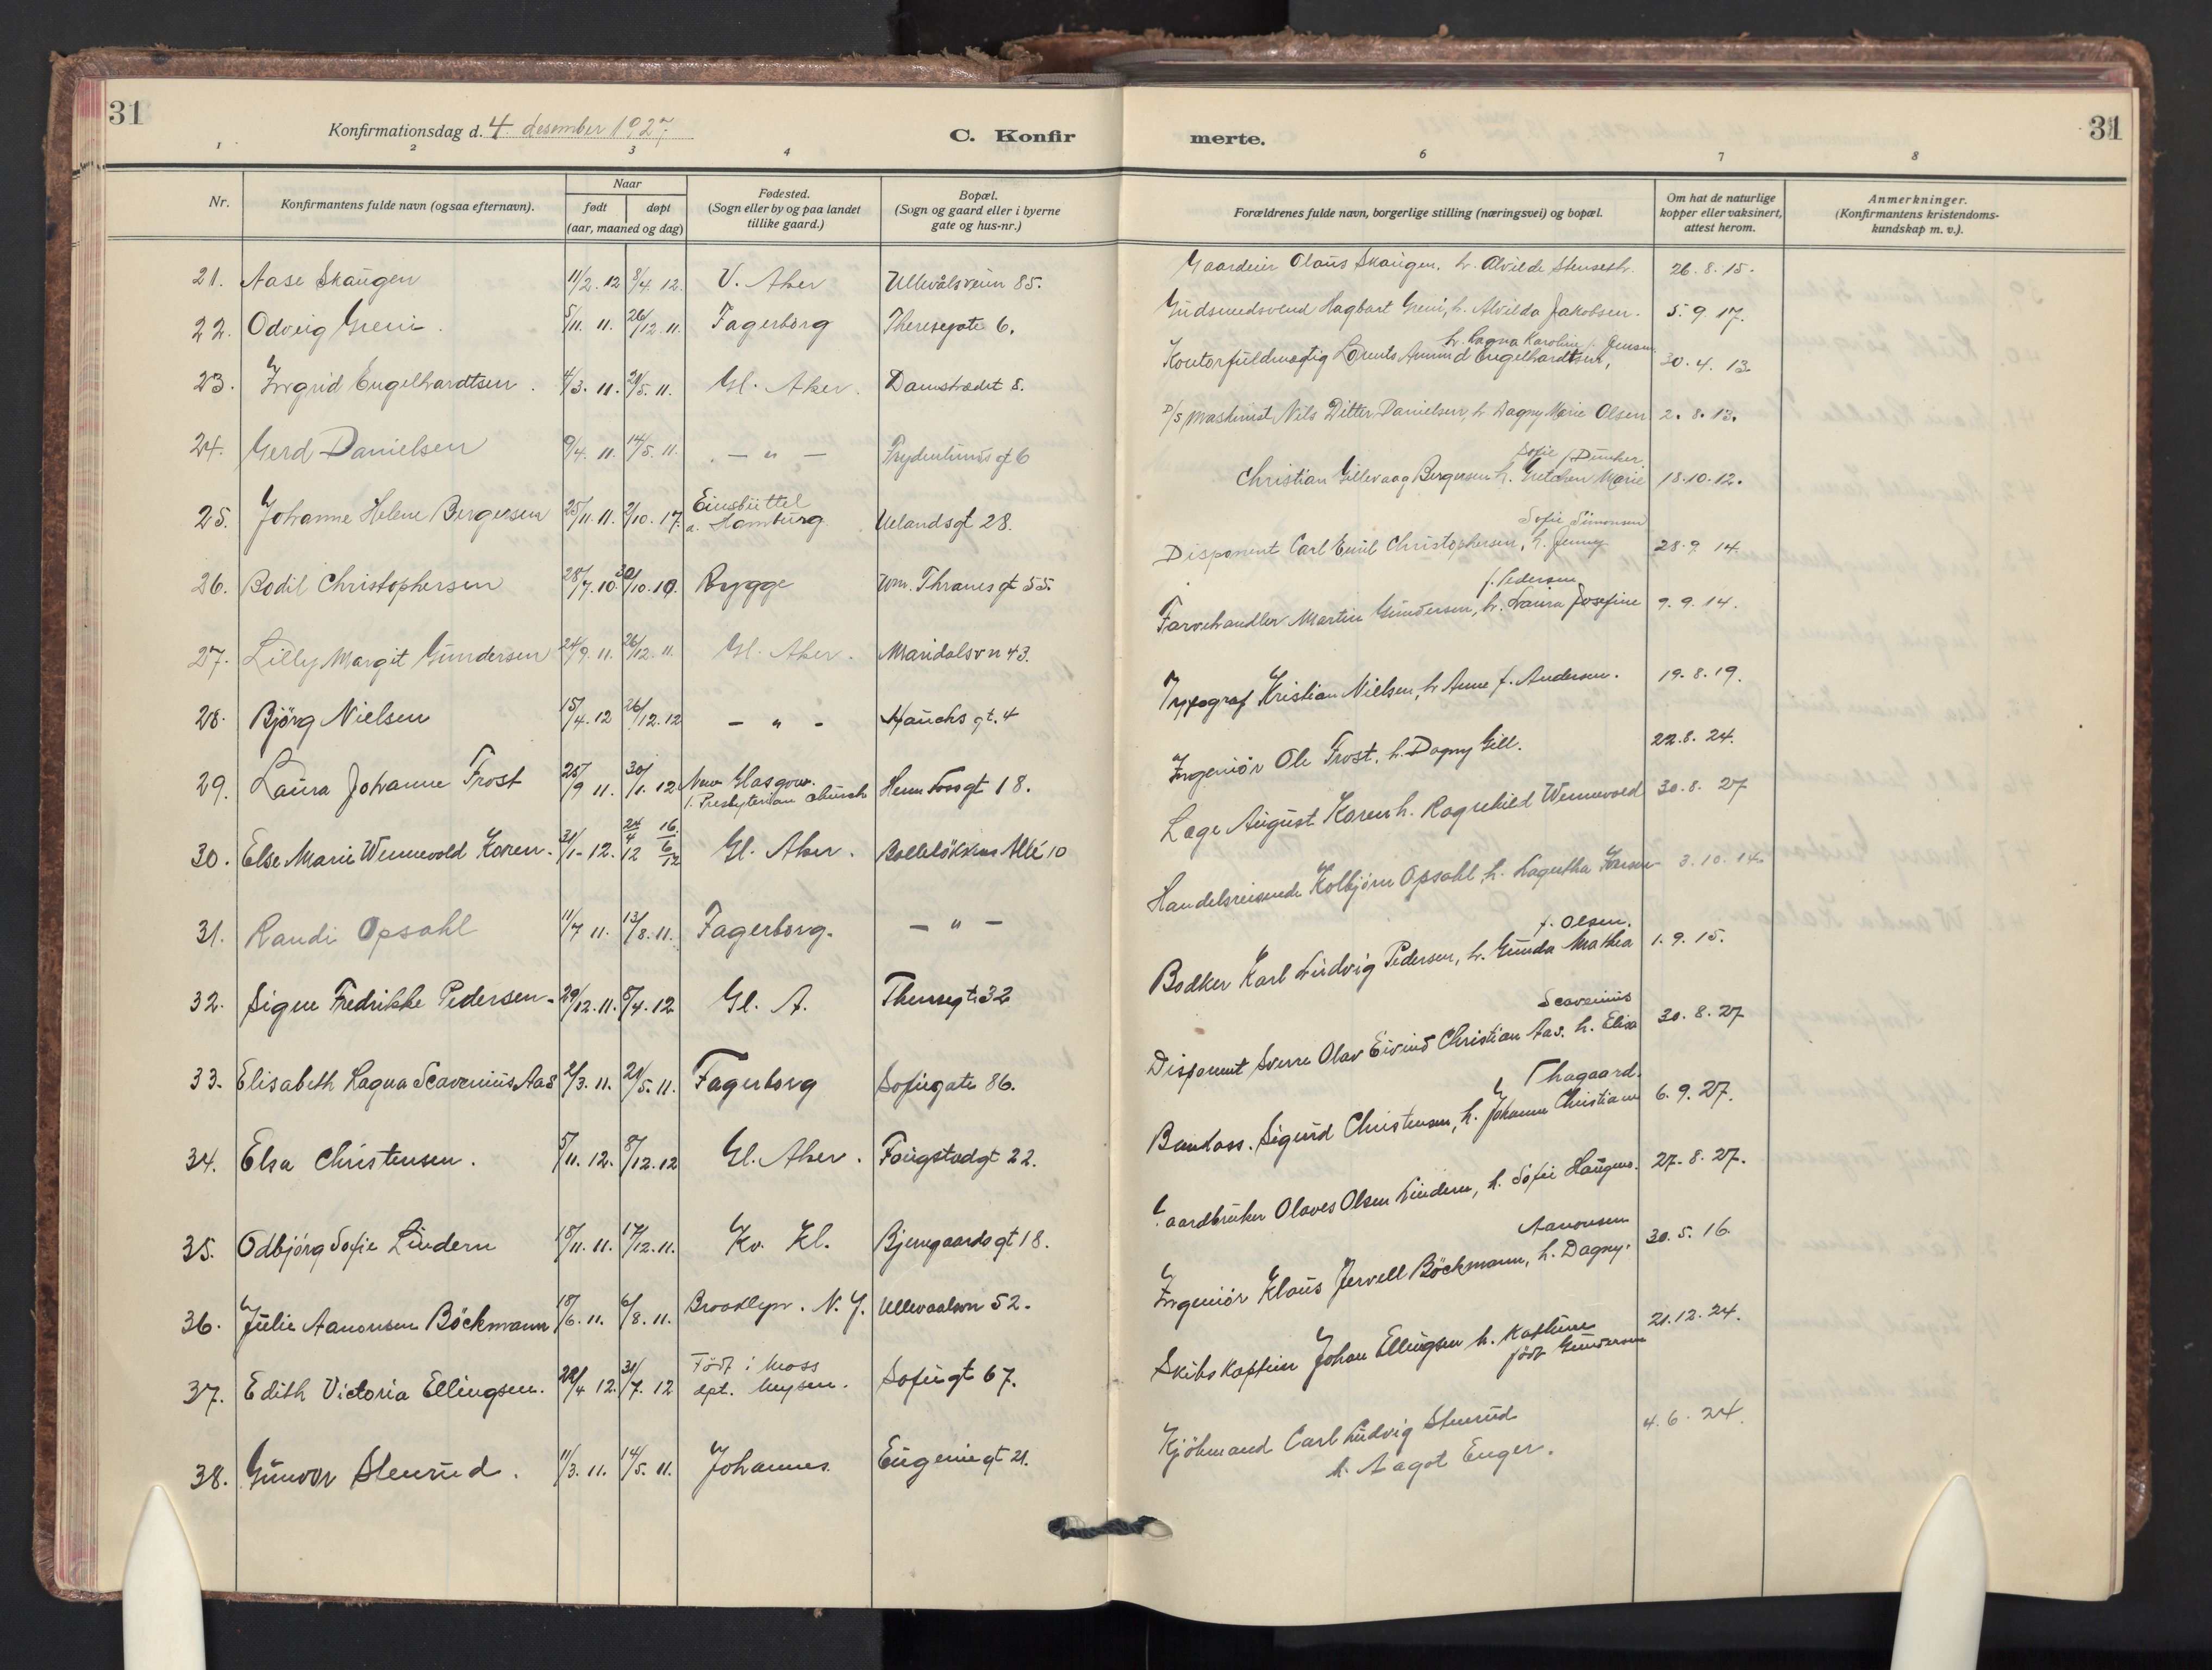 31
Konfirmationsdag d. 4 desember 1927.
C. Konfir
merte.
31
1 2 3 4 6 7 8
Nr.
Konfirmantens fulde navn (ogsaa efternavn).
Naar
født
døpt
(aar, maaned og dag)
Fødested.
(Sogn eller by og paa landet
tillike gaard.)
Bopæl.
(Sogn og gaard eller i byerne
gate og hus-nr.)
Forældrenes fulde navn, borgerlige stilling (næringsvei) og bopæl.
Om hat de naturlige
kopper eller vaksinert,
attest herom.
Anmerkninger.
(Konfirmantens kristendoms-
kundskap m. v.).
21. Aase Skaugen 11/2. 12 8/4. 12. V. Aker Ullevålsveien 85. Gaardeier Olaus Skaugen. h. Alvilde Stenseth. 26. 8. 15.
22. Odveig Greni. 5/11. 11. 26/12. 11. Fagerborg Theresegate 6. Guldsmedsvend Hagbart Greni, h. Alvilda Jakobsen. 5. 9. 17.
h. Ragna Karoline f. Jensen.
23. Ingrid Engelhardtsen. 4/3. 11. 21/5. 11. Gl. Aker. Damstrædet 8. Kontorfuldmægtig Lorents Amund Engelhardtsen, 30. 4. 13.
24. Gerd Danielsen 9/4. 11. 14/5. 11. - " - Frydenlunds gt 6 D/S Maskinist Nils Ditter Danielsen, h. Dagny Marie Olsen 2. 8. 13.
Sofie f. Duncker
25. Johanne Helene Bergersen 25/11. 11. 2/10. 17. Eimsbüttel
a. Hamburg. Uelandsgt 28. Christian Gillevaag Bergersen h. Gretchen Marie 18. 10. 12.
Sofie Simonsen
26. Bodil Christophersen 28/7. 10. 30/10. 10. Rygge Wm. Thranes gt 55. Disponent Carl Emil Christophersen, h. Jenny 28. 9. 14.
f. Pedersen
27. Lilly Margit Gundersen 24/9. 11. 26/12. 11. Gl. Aker. Maridalsvn 43. Farvehandler Martin Gundersen, h. Laura Josefine 9. 9. 14.
28. Björg Nielsen 15/4. 12 26/12. 12 - " - Hauchs gt. 4 Typograf Kristian Nielsen, h. Anne f. Andersen. 19. 8. 19.
29. Laura Johanne Frost 25/9 11. 30/1. 12 New Glasgow.
1. Presbyterian Church Herm Foss gt 18. Ingeniör Ole Frost. h. Dagny Gill. 22. 8. 24.
30. Else Marie Wennevold Koren. 31/1- 12. 24/4 12 16/6 12 Gl. Aker. Bolteløkkens Allé 10 Læge August Koren h. Ragnhild Wennevold 30. 8. 27
31. Randi Opsahl 11/7 11. 13/8. 11. Fagerborg. - " - Handelsreisende Kolbjörn Opsahl, h. Lagertha Hansen 3. 10. 14.
f. Olsen.
32. Signe Fredrikke Pedersen. 29/12. 11. 8/4. 12 Gl. A. Theresegt. 32 Bødker Karl Ludvig Pedersen, h. Gunda Mathea 1. 9. 15.
Scavenius
33. Elisabeth Ragna Scavenius Aas 2/3. 11. 21/5. 11. Fagerborg Sofiegate 86. Disponent Sverre Olav Eivind Christian Aas. h. Elisa 30. 8. 27
Thagaard.
34. Elsa Christensen. 5/11. 12. 8/12. 12 Gl. Aker. Fougstadgt 22. Bankass. Sigurd Christensen, h. Johanne Christiane 6. 9. 27.
35. Odbjörg Sofie Lindern 18/11. 11. 17/12. 11. Kv. Kl. Bjerregaardsgt 18. Gaardbruker Olaves Olsen Lindern, h. Sofie Haugens. 27. 8. 27.
Aanonsen
36. Julie Aanonsen Böckmann 18/6. 11. 6/8. 11. Brooklyn. N. Y. Ullevaalsvn 52. Ingeniör Klaus Jervell Böckmann, h. Dagny. 30. 5. 16.
37. Edith Victoria Ellingsen. 28/4 12. 31/7. 12 Født i Moss
dpt. Mysen. Sofiegt 67. Skibskaptein Johan Ellingsen h. Kathrine
født Gundersen 21. 12. 24.
38. Gunvor Stenrud. 11/3. 11. 14/5. 11. Johannes. Eugeniegt 21. Kjöbmand Carl Ludvig Stenrud
h. Aagot Enger. 4. 6. 24.